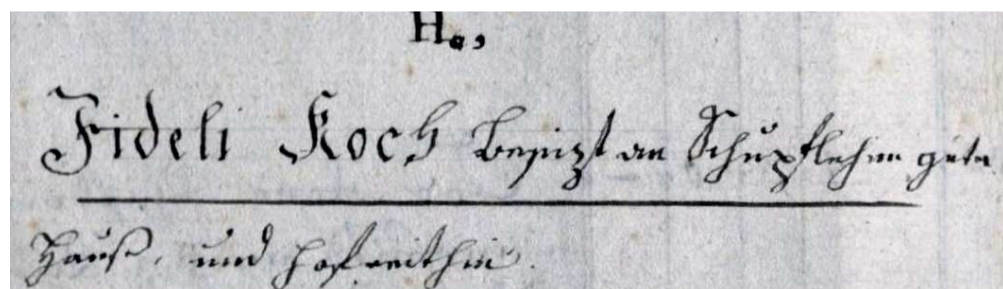 H.,
Fideli Koch besizt an Schupflehen guter
Hauß, und hofreithin.